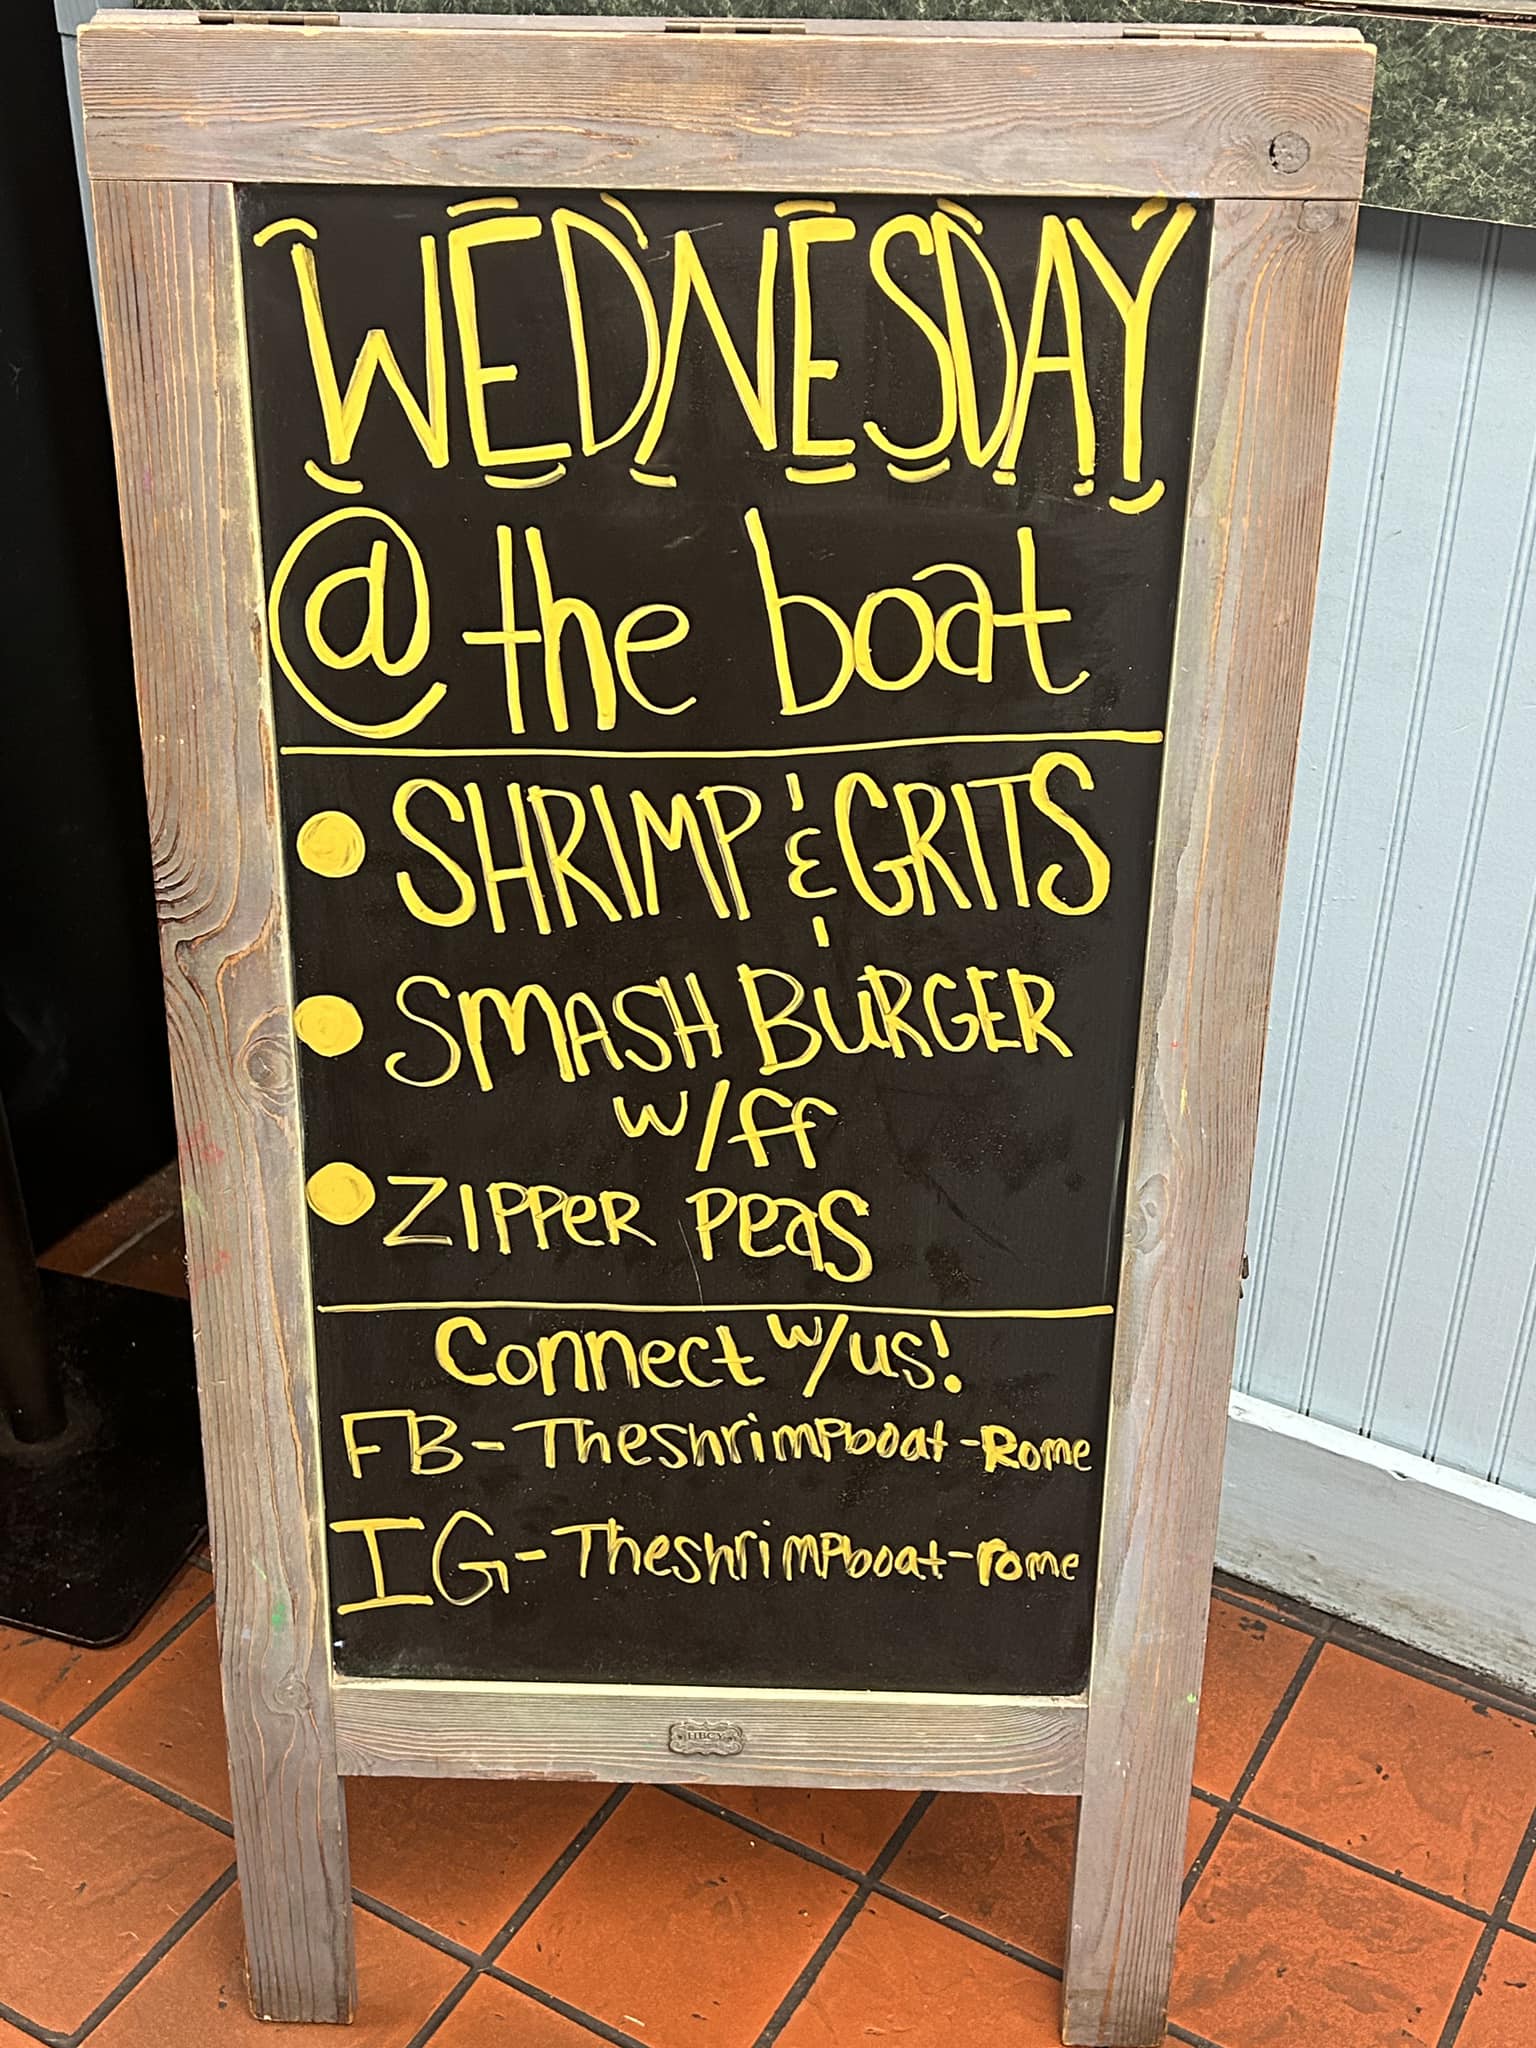 WEDNESDAY
@ the boat
SHRIMP & GRITS
SMASH BURGER
w/ff
ZIPPER PEAS
Connect w/us!
FB-Theshrimpboat-Rome
IG-Theshrimpboat-rome
HBCY